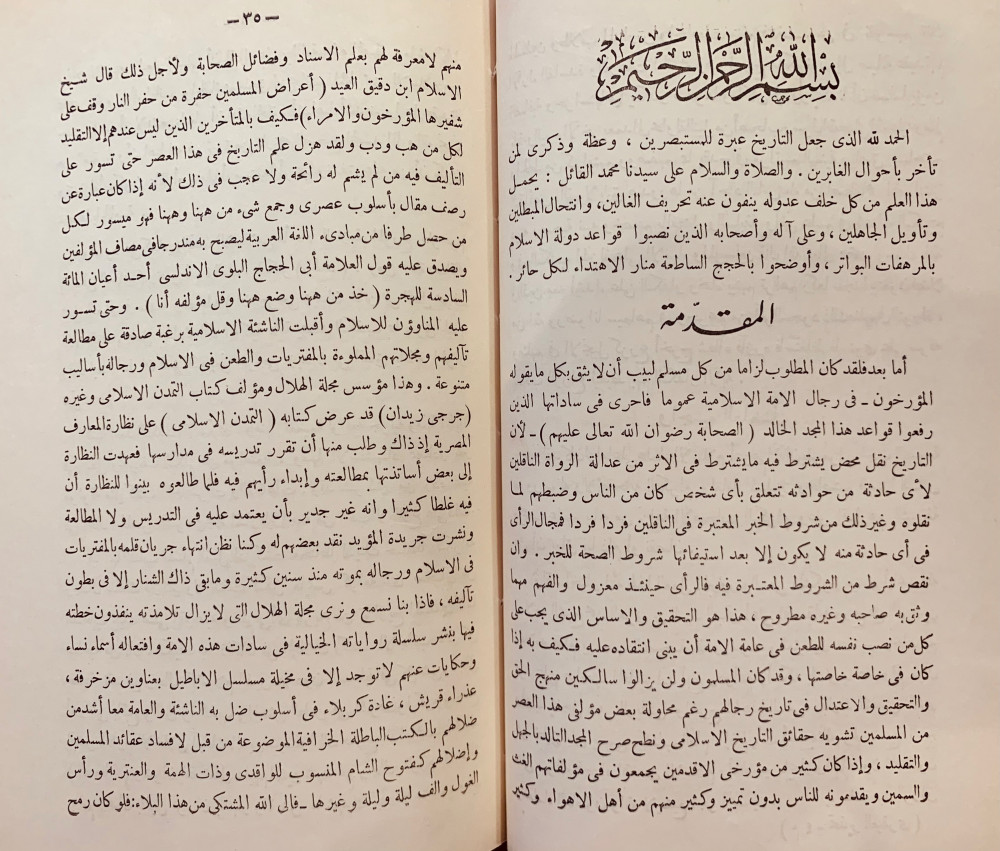 بسم الله الرحمن الرحيم
الحمد لله الذى جعل التاريخ عبرة للمستبصرين ، وعظة وذكرى لمن
تأخر بأحوال الغابرين . والصلاة والسلام على سيدنا محمد القائل : يحمل
هذا العلم من كل خلف عدوله ينفون عنه تحريف الغالين، وانتحال المبطلين
وتأويل الجاهلين ، وعلى آله وأصحابه الذين نصبوا قواعد دولة الاسلام
بالمرهفات البواتر ، وأوضحوا بالحجج الساطعة منار الاهتداء لكل حائر .
المقدمة
أما بعد فلقد كان المطلوب لزاما من كل مسلم لبيب أن لا يثق بكل ما يقوله
المؤرخون ـ فى رجال الامة الاسلامية عموما فاحرى فى ساداتها الذين
رفعوا قواعد هذا المجد الخالد ( الصحابة رضوان الله تعالى عليهم ) ـ لأن
التاريخ نقل محض يشترط فيه ما يشترط فى الاثر من عدالة الرواة الناقلين
لأى حادثة من حوادثه تتعلق بأى شخص كان من الناس وضبطهم لما
نقلوه وغير ذلك من شروط الخبر المعتبرة فى الناقلين فردا فردا فمجال الرأى
فى أى حادثة منه لا يكون إلا بعد استيفائها شروط الصحة للخبر . وان
نقص شرط من الشروط المعتبرة فيه فالرأى حينئذ معزول والفهم مهما
وثق به صاحبه وغيره مطروح ، هذا هو التحقيق والاساس الذى يجب على
كل من نصب نفسه للطعن فى عامة الامة أن يبنى انتقاده عليه فكيف به إذا
كان فى خاصة خاصتها ، وقد كان المسلمون ولن يزالوا سالكين منهج الحق
والتحقيق والاعتدال فى تاريخ رجالهم رغم محاولة بعض مؤلفى هذا العصر
من المسلمين تشويه حقائق التاريخ الاسلامى ونطح صرح المجد التالد بالجهل
والتقليد ، وإذا كان كثير من مؤرخى الاقدمين يجمعون فى مؤلفاتهم الغث
والسمين ويقدمونه للناس بدون تمييز وكثير منهم من أهل الاهواء وكثير
ـ ٣٥ ـ
منهم لا معرفة لهم بعلم الاسناد وفضائل الصحابة ولأجل ذلك قال شيخ
الاسلام ابن دقيق العيد ( أعراض المسلمين حفرة من حفر النار وقف على
شفيرها المؤرخون والامراء ) فكيف بالمتأخرين الذين ليس عندهم إلا التقليد
لكل من هب ودب ولقد هزل علم التاريخ فى هذا العصر حتى تسور على
التأليف فيه من لم يشم له رائحة ولا عجب فى ذلك لأنه إذا كان عبارة عن
رصف مقال بأسلوب عصرى وجمع شىء من ههنا وههنا فهو ميسور لكل
من حصل طرفا من مبادىء اللغة العربية ليصبح به مندرجا فى مصاف المؤلفين
ويصدق عليه قول العلامة أبى الحجاج البلوى الاندلسى أحد أعيان المائة
السادسة للهجرة ( خذ من ههنا وضع ههنا وقل مؤلفه أنا ) . وحتى تسور
عليه المناوؤن للاسلام وأقبلت الناشئة الاسلامية برغبة صادقة على مطالعة
تآليفهم ومجلاتهم المملوءة بالمفتريات والطعن فى الاسلام ورجاله بأساليب
متنوعة . وهذا مؤسس مجلة الهلال ومؤلف كتاب التمدن الاسلامى وغيره
(جرجى زيدان) قد عرض كتابه ( التمدن الاسلامى ) على نظارة المعارف
المصرية إذ ذاك وطلب منها أن تقرر تدريسه فى مدارسها فعهدت النظارة
إلى بعض أساتذتها بمطالعته وإبداء رأيهم فيه فلما طالعوه بينوا للنظارة أن
فيه غلطا كثيرا وانه غير جدير بأن يعتمد عليه فى التدريس ولا المطالعة
ونشرت جريدة المؤيد نقد بعضهم له وكنا نظن انتهاء جريان قلمه بالمفتريات
فى الاسلام ورجاله بموته منذ سنين كثيرة وما بقى ذاك الشنار إلا فى بطون
تآليفه ، فاذا بنا نسمع ونرى مجلة الهلال التى لا يزال تلامذته ينفذون خطته
فيها بنشر سلسلة رواياته الخيالية فى سادات هذه الامة وافتعاله أسماء نساء
وحكايات عنهم لا توجد إلا فى مخيلة مسلسل الاباطيل بعناوين مزخرفة ،
عذراء قريش ، غادة كربلاء فى أسلوب ضل به الناشئة والعامة معا أشد من
ضلالهم بالكتب الباطلة الخرافية الموضوعة من قبل لافساد عقائد المسلمين
وإضلالهم كفتوح الشام المنسوب للواقدى وذات الهمة والعنترية ورأس
الغول والف ليلة وليلة وغيرها ـ فالى الله المشتكى من هذا البلاء: فلو كان رمح